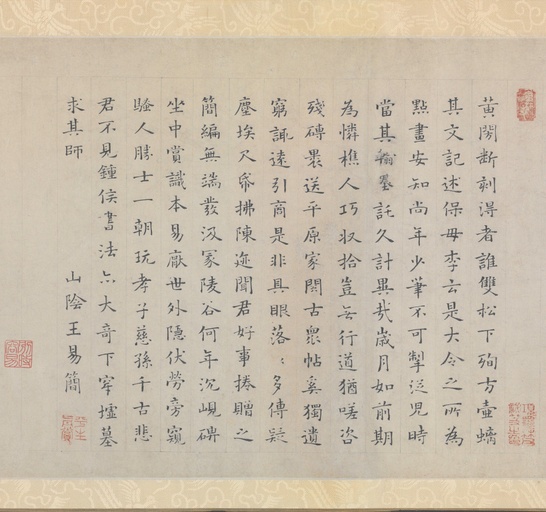 黃閍斷刻得者誰雙松下殉方壺螭
其文記述保母李云是大令之所為
點畫安知尚年少筆不可掣從児時
當其翰墨託久計異哉歲月如前期
為憐樵人巧収拾豈無行道猶嗟咨
殘磚裹送平原家閱古衆帖奚獨遺
窮諏遠引商是非具眼落〻多傳疑
塵埃尺帋拂陳迹聞君好事捧贈之
簡編無端發汲冢陵谷何年沉峴碑
坐中賞識本易厭世外隱伏勞旁窺
騷人勝士一朝玩孝子慈孫千古悲
君不見鍾侯書法亦大奇下穿壚墓
求其師
山陰王易簡